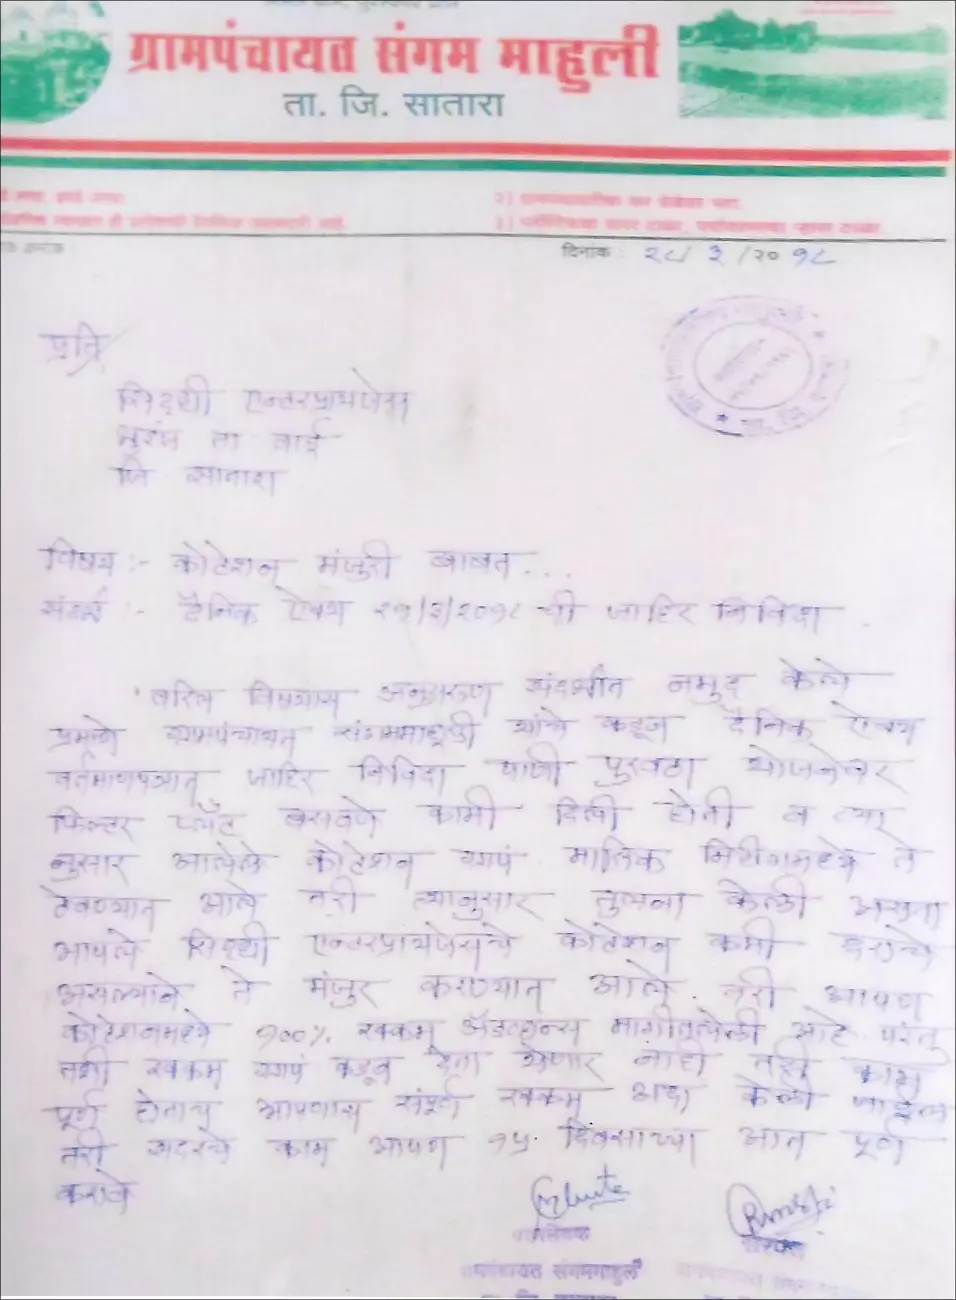 ग्रामपंचायत संगम माहुली
ता. जि. सातारा
दिनांक : २८/३/२०१८
प्रति,
एन्टरप्रायजेस
ता वाई
जि सातारा
विषय :- कोटेशन मंजुरी बाबत...
संदर्भ :- दैनिक ऐक्य २१/३/२०१८ ची जाहिर निविदा .
वरिल विषयास अनुसरुण संदर्भात नमुद केले
प्रमाणे ग्रामपंचायत संगममाहुली यांचे कडून दैनिक ऐक्य
वर्तमाणपत्रात जाहिर निविदा पाणी पुरवठा योजनेवर
फिल्टर प्लँट बसवणे कामी दिली होती व त्या
नुसार आलेले कोटेशन ग्रापं. मासिक मिटींगमध्ये ते
ठेवण्यात आले तरी त्यानुसार तुलना केली असता
आपले एन्टरप्रायजेसचे कोटेशन कमी दराचे
असल्याने ते मंजुर करण्यात आले. तरी आपण
कोटेशनमध्ये १००% रक्कम अॅडव्हान्स मागीतलेली आहे परंतु
तशी रक्कम ग्रापं कडून देता येणार नाही तरी काम
पूर्ण होताच आपणास संपूर्ण रक्कम अदा केली जाईल
तरी सदरचे काम आपण १५ दिवसाच्या आत पूर्ण
करावे
ग्रामसेवक सरपंच
ग्रामपंचायत संगममाहुली ग्रामपंचायत संगम